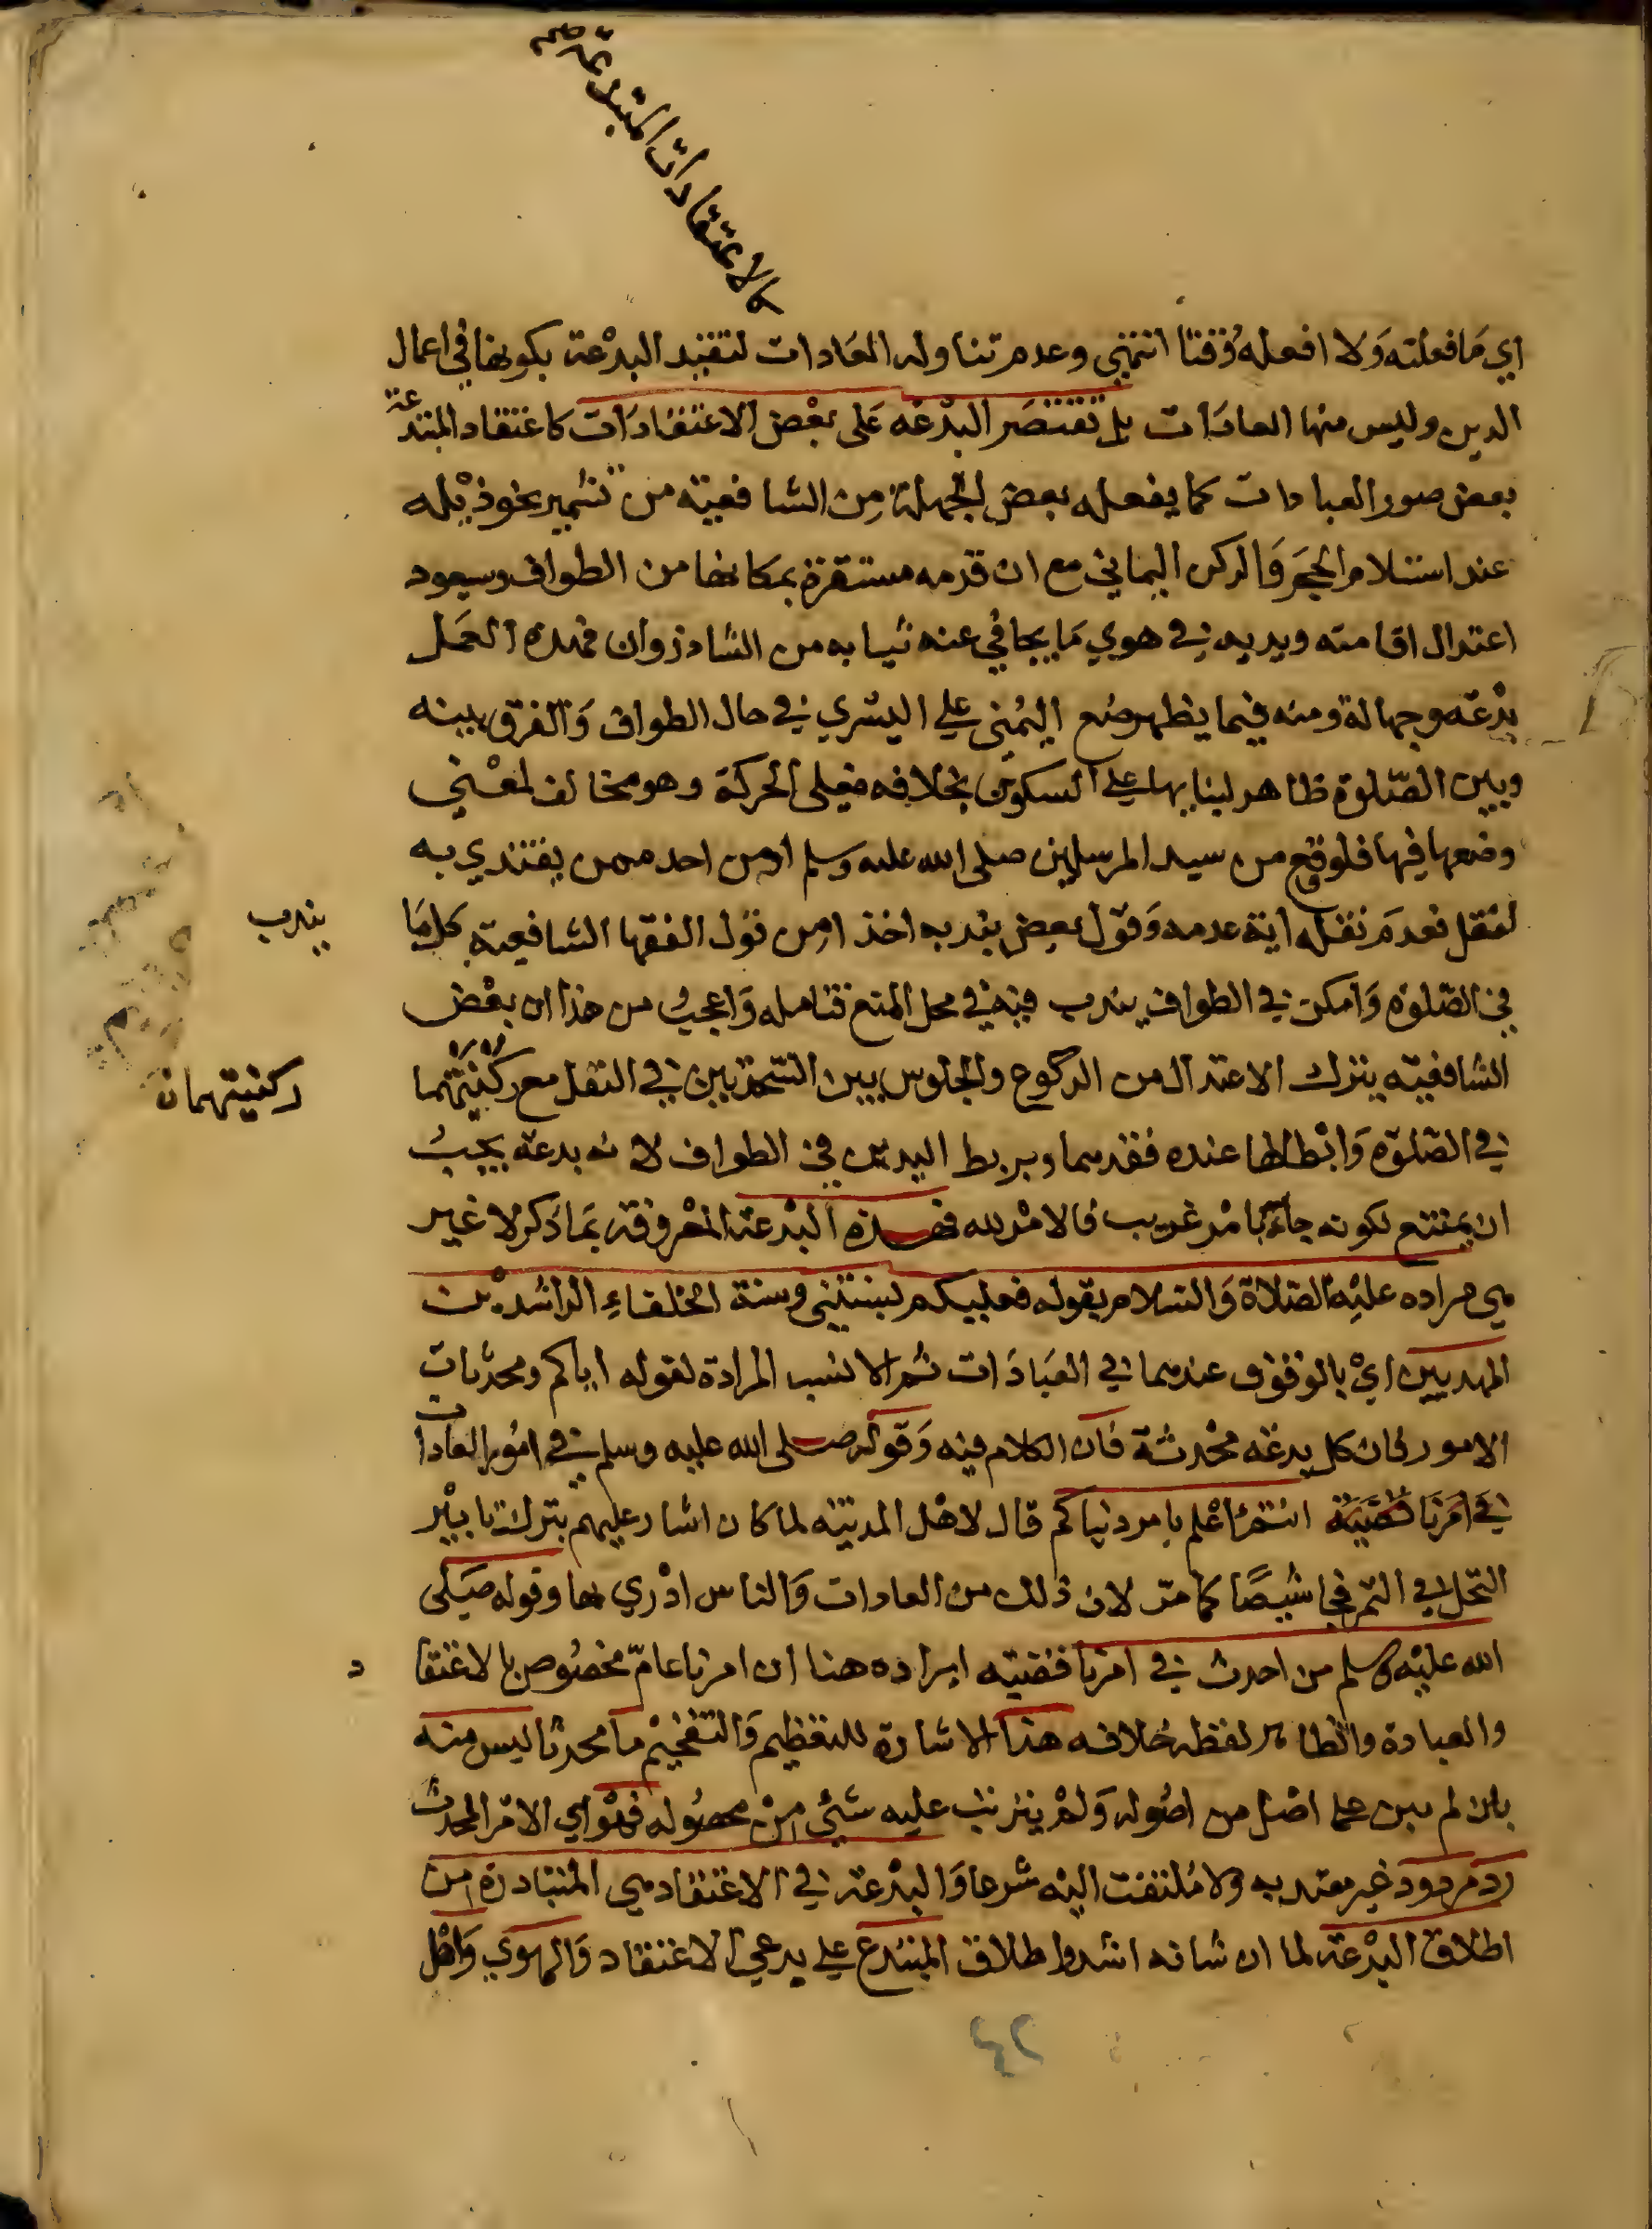 كالاعتقادات المبتدعة صح
اي ما فعلته ولا افعله وقتا انتهي وعدم تناوله العادات لتقييد البدعة بكونها في اعمال
الدين وليس منها العادات بل تقتصر البدعة على بعض الاعتقادات كاعتقاد المبتدعة
بعض صور العبادات كما يفعله بعض الجهلة من الشافعية من تشمير نحو ذيله
عند استلام الحجر والركن اليماني مع ان قدمه مستقرة بمكانها من الطواف وسيعود
اعتدال اقامته ويديه في هوي ما يجافي عنه ثيابه من الشاذروان فهذه العمل
بدعة وجهالة ومنه فيما يظهر وضع اليمني علي اليسري في حال الطواف والفرق بينه
وبين الصلوة ظاهر لبنايها علي السكون بخلافه فيعلى الحركة وهو مخالف لمعنى
وضعها فيها فلو وقع من سيد المرسلين صلى الله عليه وسلم او من احد ممن يقتدي به
لنقل فعدم نقله اية عدمه وقول بعض بندبه اخذا من قول الفقها الشافعية كل ما
يندب
في الصلوة وامكن في الطواف يندب فيه في محل المنع فتامله واعجب من هذا ان بعض
الشافعية يترك الاعتدال من الركوع والجلوس بين السجدتين في النفل مع ركنيتهما
ركنيتهمان
في الصلوة وابطالها عنده فقدهما ويربط اليدين في الطواف لانه بدعة يجب
ان يمتنع لكونه جاء بامر غريب فالامر لله فهذه البدعة المعروفة بما ذكر لا غير
هي مراده عليه الصلاة والسلام بقوله فعليكم بسنتي وسنة الخلفاء الراشدين
المهديين اي بالوقوف عندهما في العبادات ثم الانسب المرادة لقوله اياكم ومحدثات
الامور فان كل بدعة محدثة فان الكلام فيه وقوله صلى الله عليه وسلم في امور العادات
في امرنا انتم اعلم بامر دنياكم قال لاهل المدينه لما كان اشار عليهم بترك تابير
النخل في الثمر فجا شيصا كما مر لان ذلك من العادات والناس ادري بها وقوله صلى
الله عليه وسلم من احدث في امرنا فقضيته ايراده هنا ان امرنا عام مخصوص بالاعتقاد
والعبادة والظاهر لفظه خلافه هذا الاشارة للتعظيم والتفخيم ما محدثا ليس منه
بان لم يبن على اصل من اصوله ولم يترتب عليه شئ من محصوله فهو اي الامر المحدث
رد مردود غير معتد به ولا ملتفت اليه شرعا والبدعة في الاعتقاد هي المتبادرة من
اطلاق البدعة لما ان شانه اشد واطلاق المبتدع علي يدعي الاعتقاد والهوي واهل
٤٢